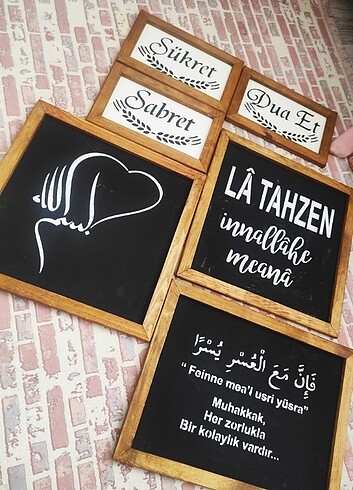 Şükret
Sabret
Dua Et
بسم الله
LÂ TAHZEN
innallâhe
meanâ
فَإِنَّ مَعَ الْعُسْرِ يُسْرًا
“Feinne mea'l usri yüsra”
Muhakkak,
Her zorlukla
Bir kolaylık vardır...